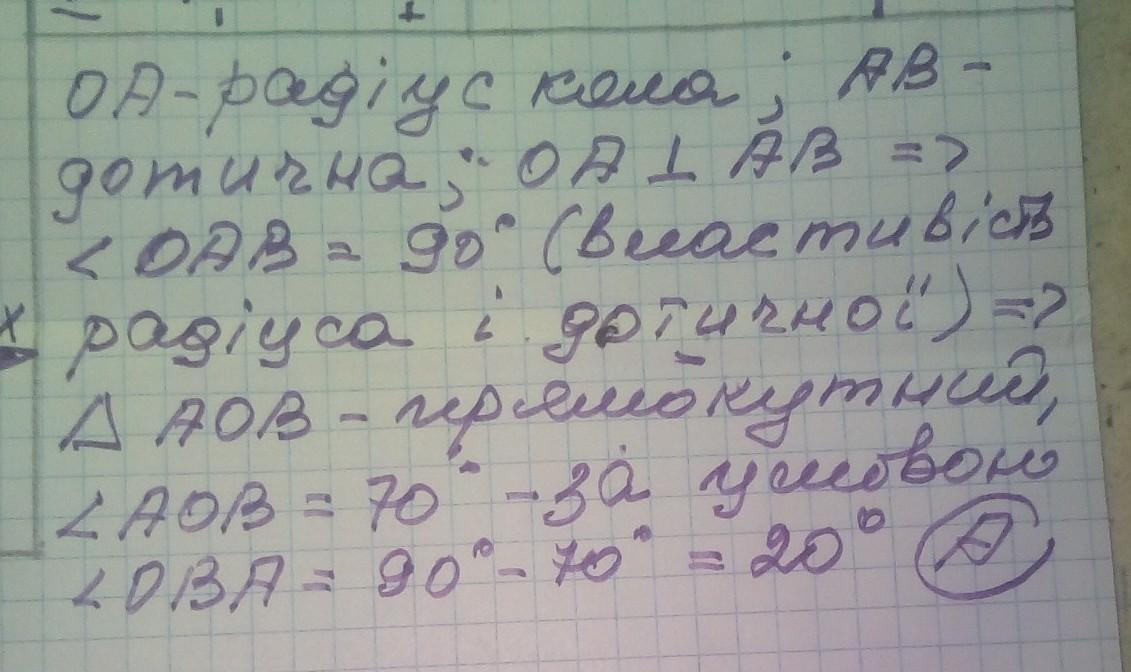 OA - радіус кола; AB -
дотична; OA ⊥ AB =>
< OAB = 90° (властивість
радіуса і дотичної) =>
Δ AOB - прямокутний,
< AOB = 70° - за умовою
< OBA = 90° - 70° = 20° A